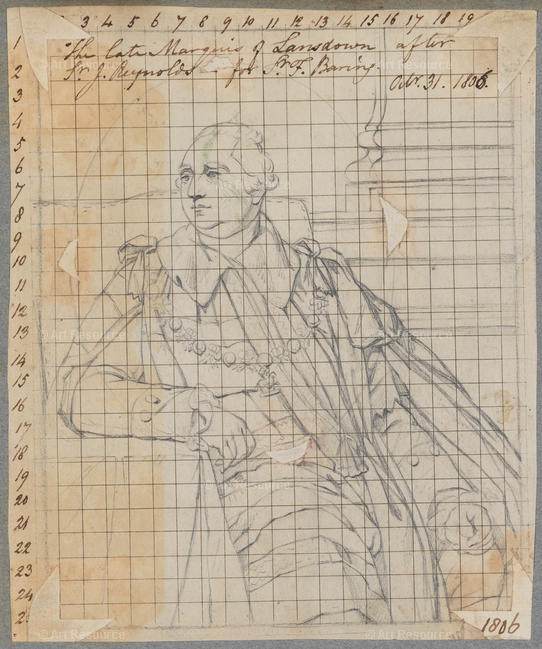 3 4 5 6 7 8 9 10 11 12 13 14 15 16 17 18 19
The late Marquis of Lansdown after
Sr. J. Reynolds — for Sr. F. Baring.
Octr. 31. 1806.
1
2
3
4
5
6
7
8
9
10
11
12
13
14
15
16
17
18
19
20
21
22
23
24
2
1806
© Art Resource
© Art Resource
© Art Resource
© Art Resource
© Art Resource
© Art Resource
© Art Resource